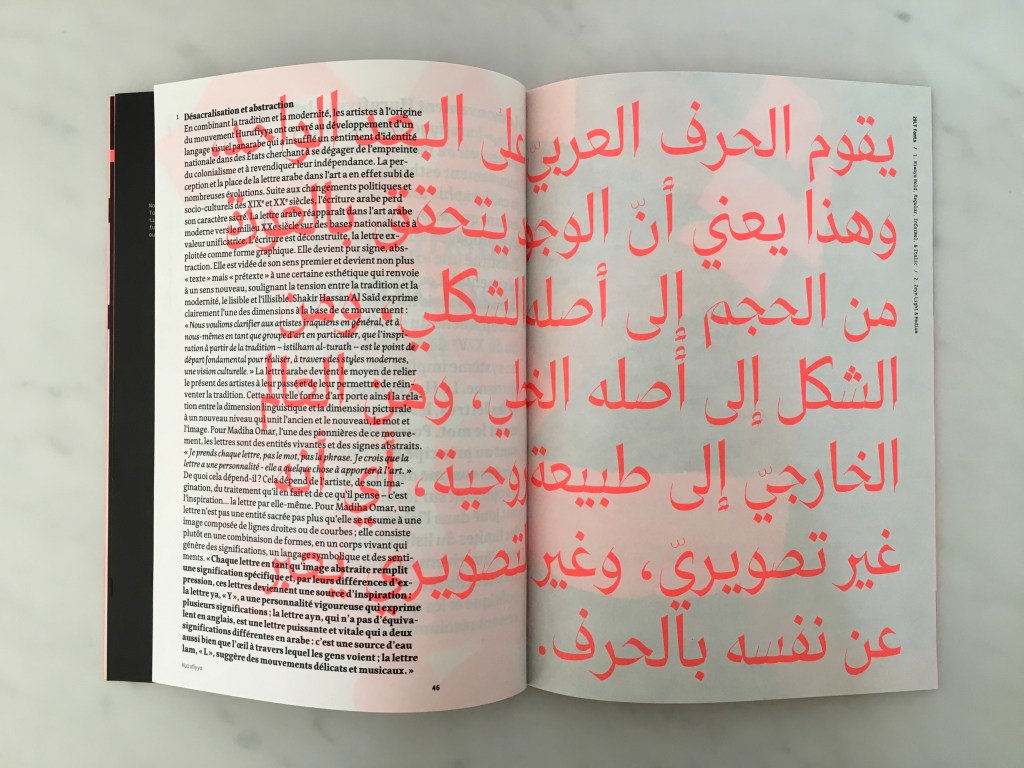 1 Désacralisation et abstraction
En combinant la tradition et la modernité, les artistes à l'origine
du mouvement Hurufiyya ont œuvré au développement d'un
langage visuel panarabe qui a insufflé un sentiment d'identité
nationale dans des États cherchant à se dégager de l'empreinte
du colonialisme et à revendiquer leur indépendance. La per-
ception et la place de la lettre arabe dans l'art a en effet subi de
nombreuses évolutions. Suite aux changements politiques et
socio-culturels des XIXᵉ et XXᵉ siècles, l'écriture arabe perd
son caractère sacré. La lettre arabe réapparaît dans l'art arabe
moderne vers le milieu XXe siècle sur des bases nationalistes à
valeur unificatrice. L'écriture est déconstruite, la lettre ex-
ploitée comme forme graphique. Elle devient pur signe, abs-
traction. Elle est vidée de son sens premier et devient non plus
« texte » mais « prétexte » à une certaine esthétique qui renvoie
à un sens nouveau, soulignant la tension entre la tradition et la
modernité, le lisible et l'illisible. Shakir Hassan Al Saïd exprime
clairement l'une des dimensions à la base de ce mouvement :
« Nous voulions clarifier aux artistes iraquiens en général, et à
nous-mêmes en tant que groupe d'art en particulier, que l'inspi-
ration à partir de la tradition – istilham al-turath – est le point de
départ fondamental pour réaliser, à travers des styles modernes,
une vision culturelle. » La lettre arabe devient le moyen de relier
le présent des artistes à leur passé et de leur permettre de réin-
venter la tradition. Cette nouvelle forme d'art porte ainsi la rela-
tion entre la dimension linguistique et la dimension picturale
à un nouveau niveau qui unit l'ancien et le nouveau, le mot et
l'image. Pour Madiha Omar, l'une des pionnières de ce mouve-
ment, les lettres sont des entités vivantes et des signes abstraits.
« Je prends chaque lettre, pas le mot, pas la phrase. Je crois que la
lettre a une personnalité - elle a quelque chose à apporter à l'art. »
De quoi cela dépend-il ? Cela dépend de l'artiste, de son ima-
gination, du traitement qu'il en fait et de ce qu'il pense – c'est
l'inspiration... la lettre par elle-même. Pour Madiha Omar, une
lettre n'est pas une entité sacrée pas plus qu'elle se résume à une
image composée de lignes droites ou de courbes ; elle consiste
plutôt en une combinaison de formes, en un corps vivant qui
génère des significations, un langage symbolique et des senti-
ments. « Chaque lettre en tant qu'image abstraite remplit
une signification spécifique et, par leurs différences d'ex-
pression, ces lettres deviennent une source d'inspiration ;
la lettre ya, « Y », a une personnalité vigoureuse qui exprime
plusieurs significations ; la lettre ayn, qui n'a pas d'équiva-
lent en anglais, est une lettre puissante et vitale qui a deux
significations différentes en arabe : c'est une source d'eau
aussi bien que l'œil à travers lequel les gens voient ; la lettre
lam, « L », suggère des mouvements délicats et musicaux. »
Hurufiyya
45
يقوم الحرف العربيّ على البعد الواحد،
وهذا يعني أنّ الوجود يتحقق بالعودة
من الحجم إلى أصله الشكلي، ومن
الشكل إلى أصله الخطي، ومن العالم
الخارجيّ إلى طبيعة روحية، أي أنه
غير تصويريّ، وغير تصويري يعبر
عن نفسه بالحرف.
2017 Fonts / 1. Regular, Informal & Italic / 2. Light & Medium